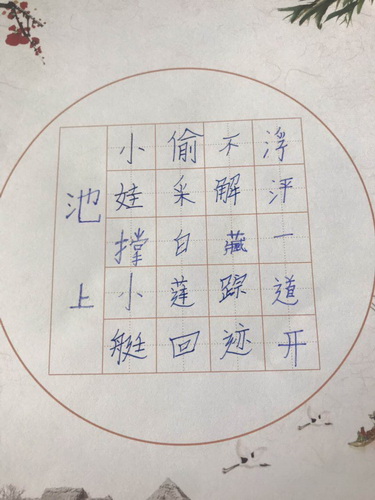 池上
小娃撑小艇
偷采白莲回
不解藏踪迹
浮泙一道开